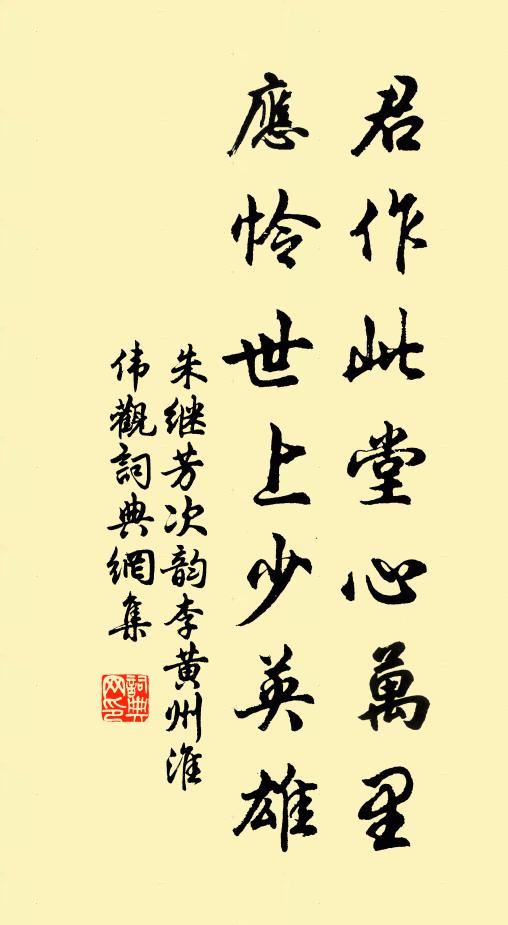 君作此堂心萬里
應怜世上少英雄
朱继芳次韵李黄州淮
伟觀詞典網集
詞典
网印